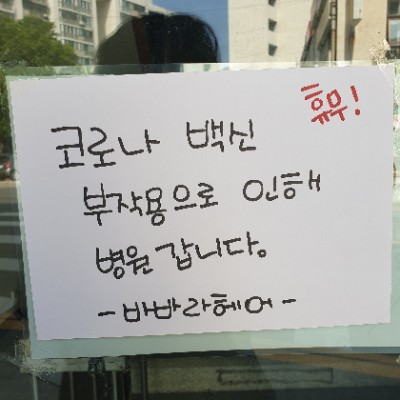 휴무!
코로나 백신
부작용으로 인해
병원 갑니다.
-바빠라헤어-